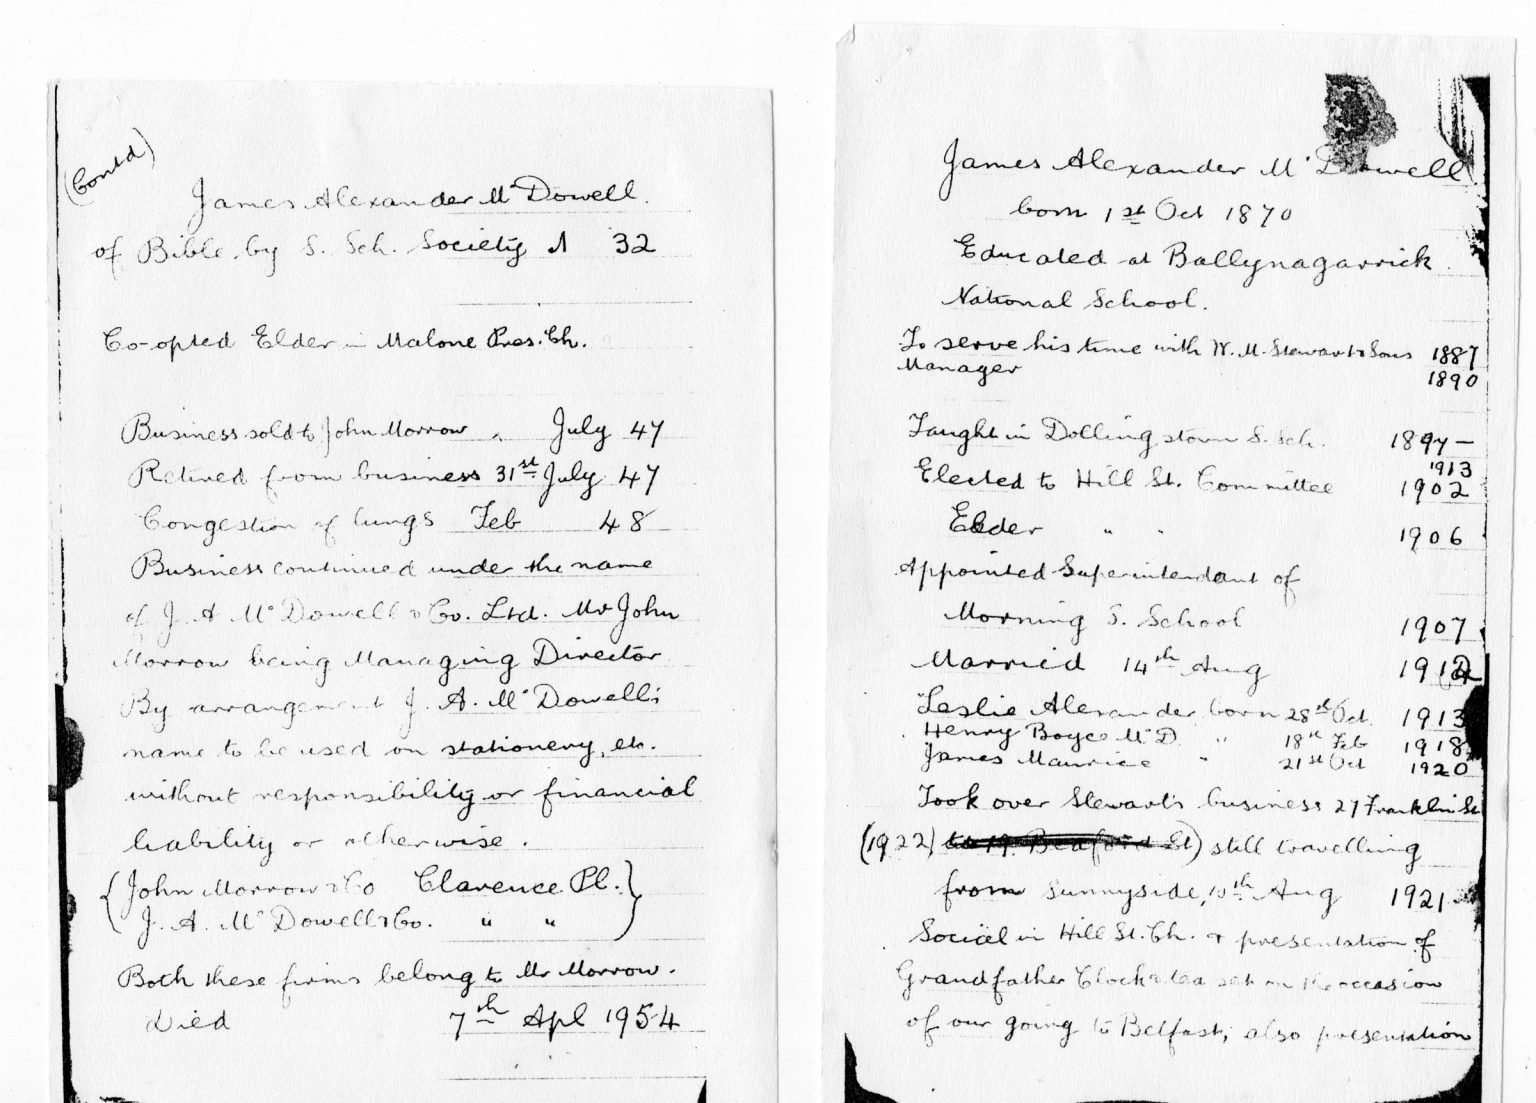 (Contd)
James Alexander McDowell.
of Bible by S. Sch. Society 32
Co-opted Elder in Malone Pres. Ch.
Business sold to John Morrow July 47
Retired from business 31st July 47
Congestion of lungs Feb 48
Business continued under the name
of J. A. McDowell & Co. Ltd. Mr John
Morrow being Managing Director
By arrangement J. A. McDowell's
name to be used on stationery, etc.
without responsibility or financial
liability or otherwise.
{John Morrow & Co Clarence Pl.}
{J. A. McDowell & Co. " "}
Both these firms belong to Mr Morrow.
Died 7th Apl 1954
James Alexander McDowell.
born 1st Oct 1870
Educated at Ballynagarrick
National School.
To serve his time with W. M. Stewart & Sons 1887
Manager 1890
Taught in Dollingstown S. Sch. 1897-
1913
Elected to Hill St. Committee 1902
Elder " " 1906
Appointed Superintendant of
Morning S. School 1907
Married 14th Aug
Leslie Alexander born 28th Oct 1913
Henry Boyce McD " 18th Feb 1918
James Maurice " 21st Oct 1920
Took over Stewart's business 27 Franklin St
(1922) to 19 Bedford St) still travelling
from Sunnyside, 10th Aug 1921
Social in Hill St. Ch. & presentation of
Grandfather Clock & tea set on the occasion
of our going to Belfast, also presentation